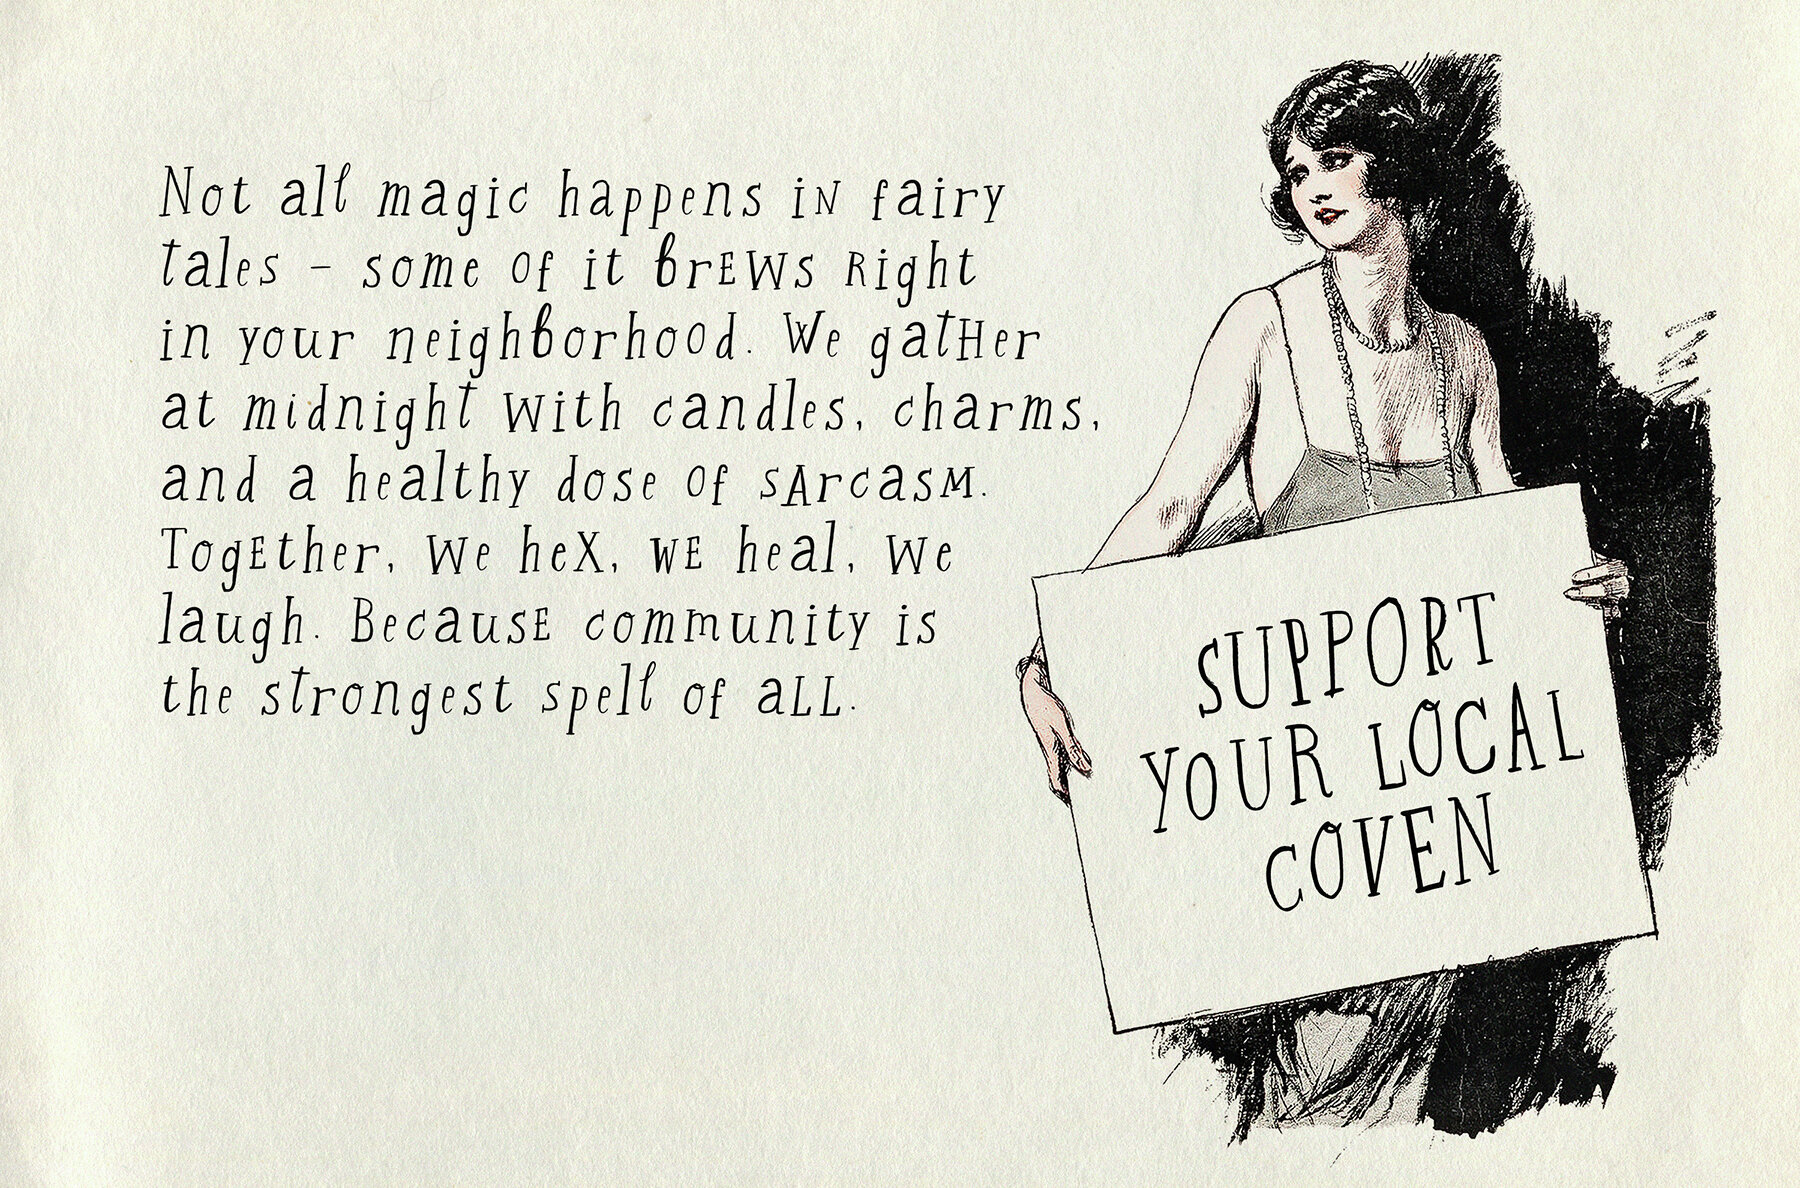 Not all magic happens iN fairy
tales – some of it brEWS Right
in your neighborhood. We gatHer
at midnight with candles, charms,
and a healthy dose of sArcasM.
TogEther, We heX, WE heal, We
laugh. BecausE community is
the strongest spell of aLL.
SUPPORT
YOUR LOCAL
COVEN